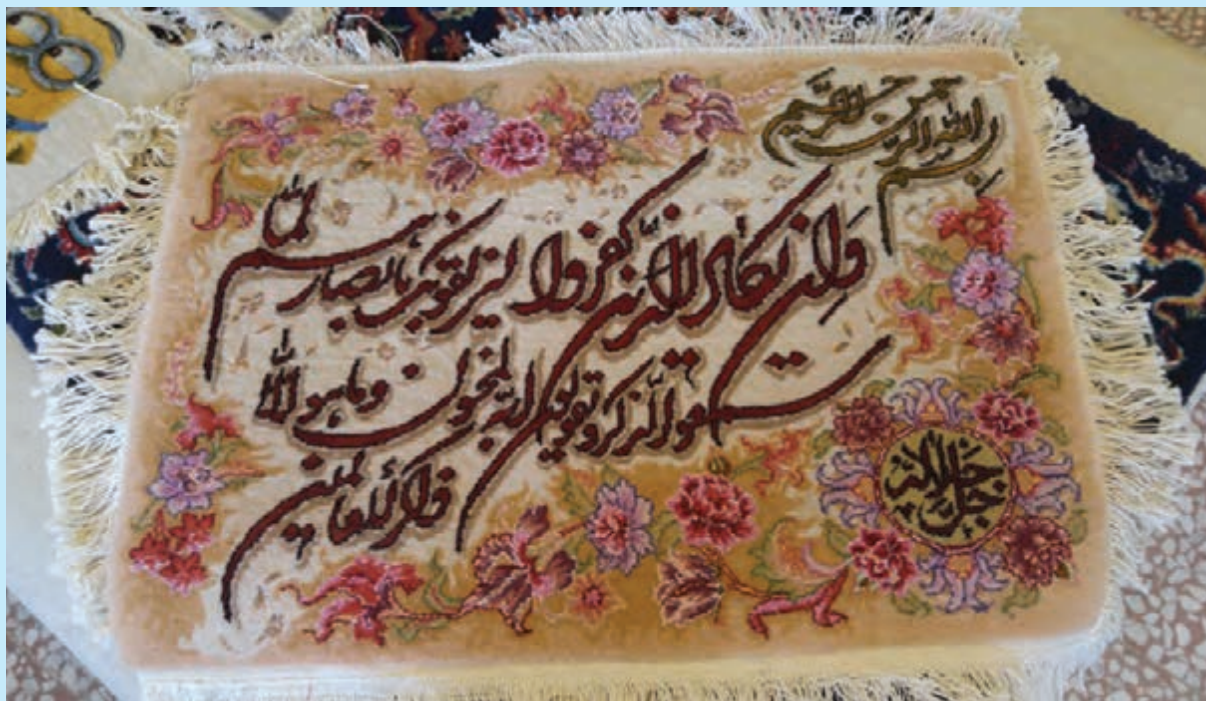 بسم الله الرحمن الرحیم
وَاِن یکاد الذین کفروا لیزلقونک بابصارهم لمّا
سمعوا الذّکر و یقولون انه لمجنون و ما هو الّا
ذکر للعالمین
جَلّ جلاله